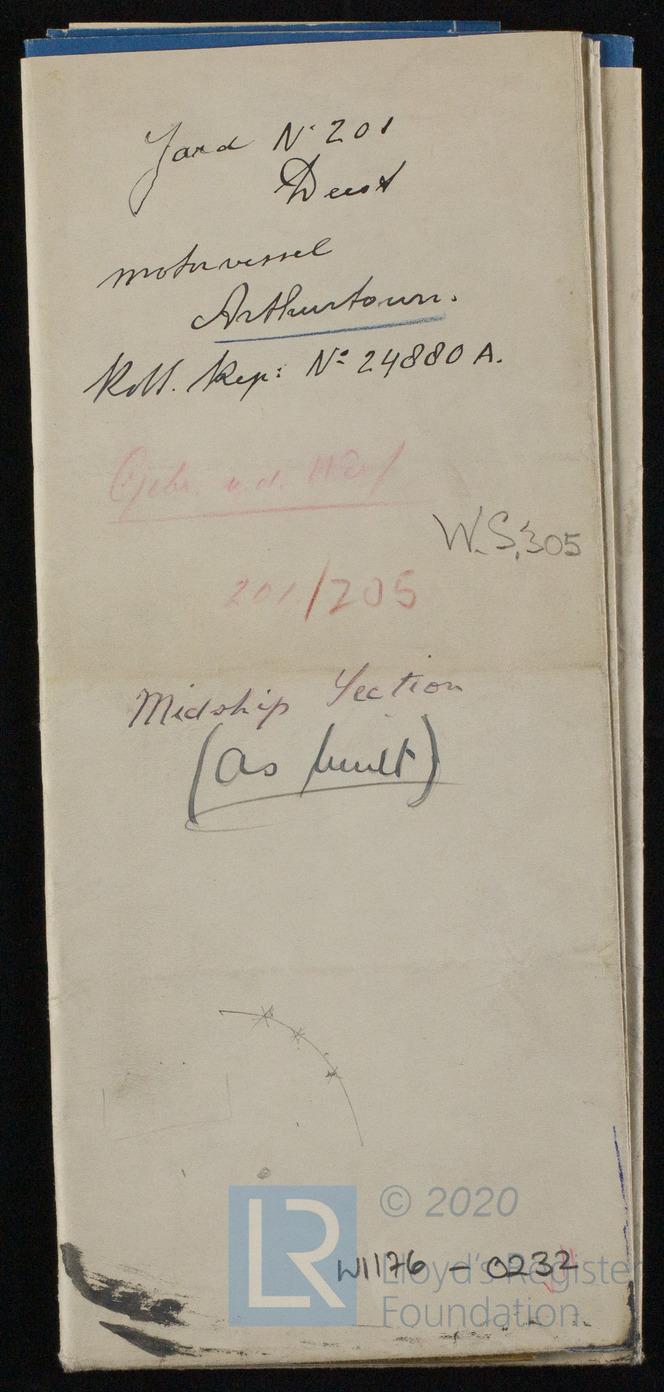 Yard No 201
Deest
motorvessel
Arthurtown.
Rott. Rep: No 24880 A.
Gebr. v.d. Werf
W.S.305
201/205
Midship Section
(as built)
LR
© 2020
Lloyd's Register
Foundation
W1176 - 0232